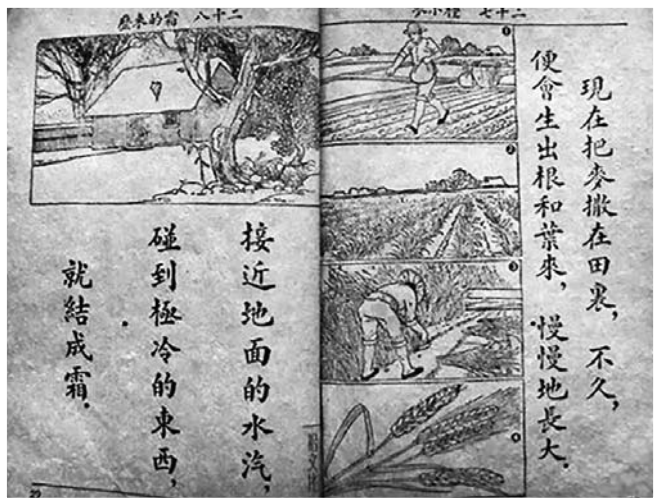 二十七 種小麥
現在把麥撒在田裏,不久,
便會生出根和葉來,慢慢地長大.
1
2
3
4
二十八 霜的來歷
接近地面的水汽,
碰到極冷的東西,
就結成霜.